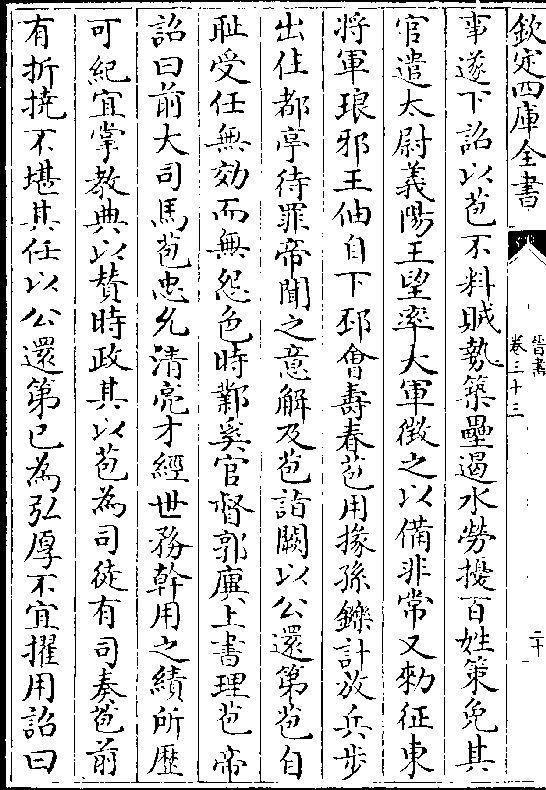 欽定四庫全書
晉書
卷三十三
二十
事遂下詔以苞不料賊勢築壘遏水勞擾百姓策免其
官遣太尉義陽王望率大軍徵之以備非常又勑征東
將軍琅邪王伷自下邳會壽春苞用掾孫鑠計放兵步
出住都亭待罪帝聞之意解及苞詣闕以公還第苞自
耻受任無効而無怨色時鄴奚官督郭廙上書理苞帝
詔曰前大司馬苞忠允清亮才經世務幹用之績所歴
可紀宜掌教典以贊時政其以苞為司徒有司奏苞前
有折撓不堪其任以公還第已為弘厚不宜擢用詔曰